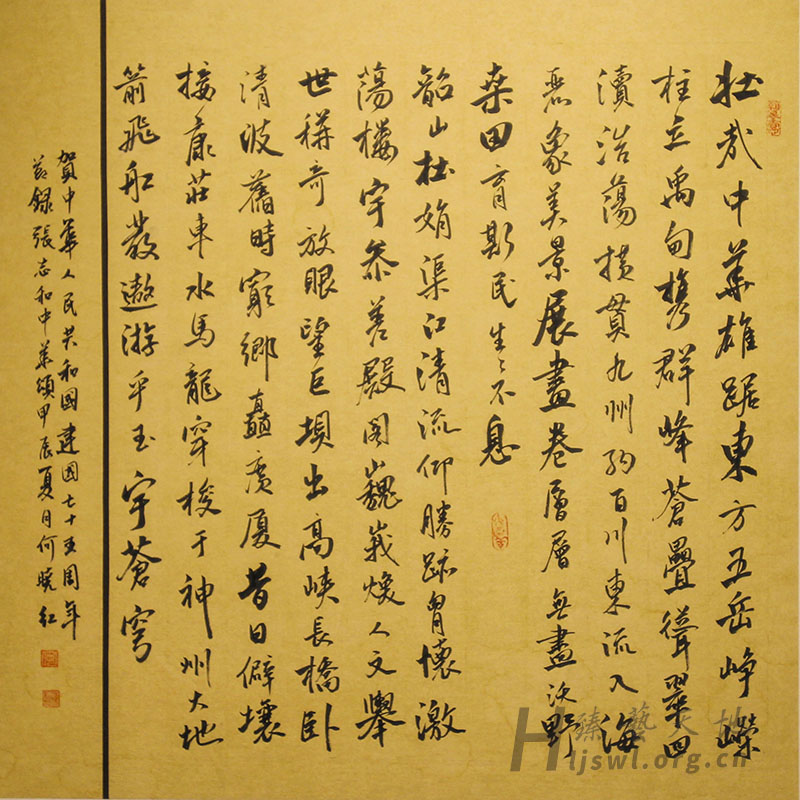 壯哉中華雄踞東方五岳崢嶸
柱立禹甸携群峰蒼疊聳翠四
瀆浩蕩横貫九州納百川東流入海
象美景展畫卷層層無盡沃野
桑田育斯民生〻不息
韶山杜娟渠江清流仰勝跡胷懷激
蕩樓宇參差殿閣巍峩焕人文舉
世稱奇放眼望巨壩出高峽長橋卧
清波舊時窮鄉矗廣厦昔日僻壤
接康莊車水馬龍穿梭于神州大地
箭飛船發遨游乎玉宇蒼穹
賀中華人民共和國建國七十五周年
節録張志和中華頌甲辰夏月何曉紅
臻藝天地
Hljswl.org.cn